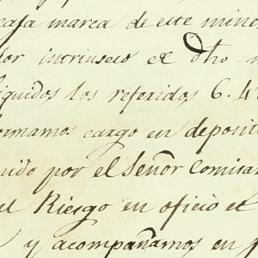 caja marca de este mine
or intrinseco el dho.
iquidos los referidos 6.4
ormamos cargo en deposit
uido por el Señor Comisar
el Riesgo en oficio el
y acompañamos en